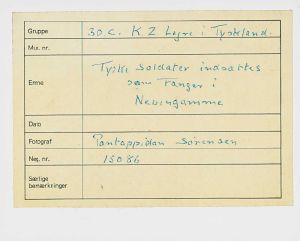 Gruppe 30 C. K Z Lejre i Tyskland.
Mix. nr.
Emne Tyske Soldater indsættes
som Fanger i
Neuengamme
Dato
Fotograf Pantoppidan Sørensen
Neg. nr. 15086
Særlige
bemærkninger